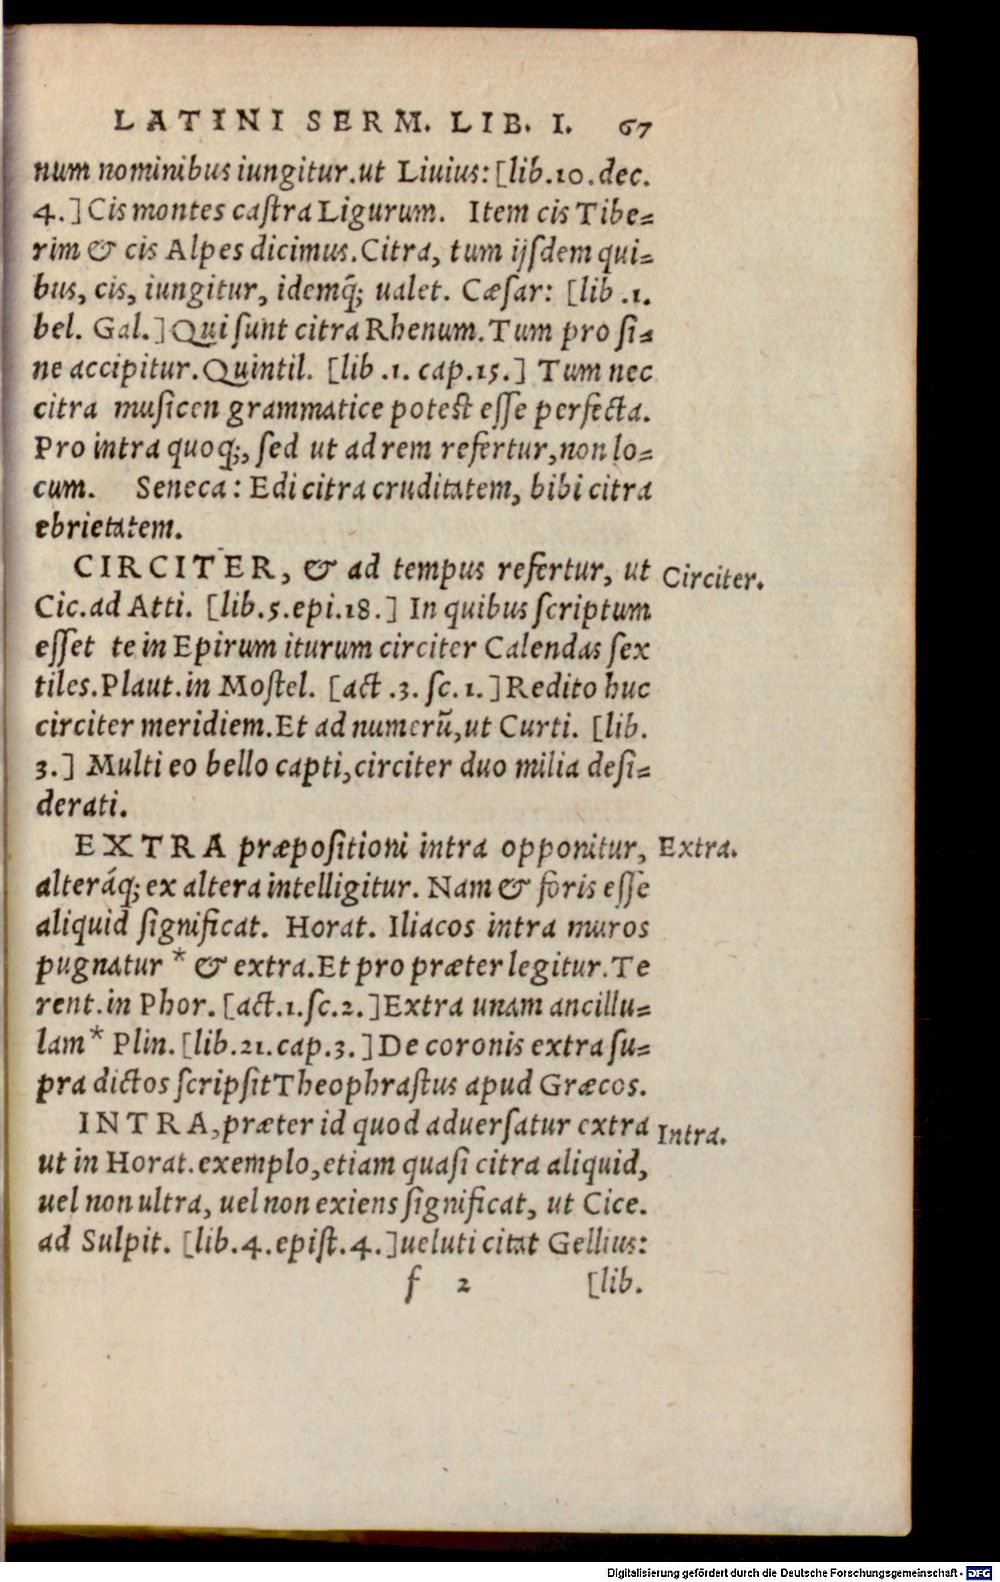 LATINI SERM. LIB. I. 67
num nominibus iungitur.ut Liuius: [lib.10.dec.
4.] Cis montes caſtra Ligurum. Item cis Tibe=
rim & cis Alpes dicimus. Citra, tum ijſdem qui=
bus, cis, iungitur, idemq́; ualet. Cæſar: [lib .1.
bel. Gal.] Qui ſunt citra Rhenum. Tum pro ſi=
ne accipitur. Quintil. [lib .1. cap.15.] Tum nec
citra muſicen grammatice poteſt eſſe perfecta.
Pro intra quoq;, ſed ut ad rem refertur, non lo=
cum. Seneca: Edi citra cruditatem, bibi citra
ebrietatem.
CIRCITER, & ad tempus refertur, ut
Circiter.
Cic. ad Atti. [lib.5.epi.18.] In quibus ſcriptum
eſſet te in Epirum iturum circiter Calendas ſex
tiles. Plaut. in Moſtel. [act .3. ſc. 1.] Redito huc
circiter meridiem. Et ad numerū, ut Curti. [lib.
3.] Multi eo bello capti, circiter duo milia deſi=
derati.
EXTRA præpoſitioni intra opponitur,
Extra.
alteráq; ex altera intelligitur. Nam & foris eſſe
aliquid ſignificat. Horat. Iliacos intra muros
pugnatur * & extra. Et pro præter legitur. Te
rent. in Phor. [act.1.ſc.2.] Extra unam ancillu=
lam * Plin. [lib.21.cap.3.] De coronis extra ſu=
pra dictos ſcripſit Theophraſtus apud Græcos.
INTRA, præter id quod aduerſatur extra
Intra.
ut in Horat. exemplo, etiam quaſi citra aliquid,
uel non ultra, uel non exiens ſignificat, ut Cice.
ad Sulpit. [lib.4.epiſt.4.] ueluti citat Gellius:
f 2 [lib.
Digitalisierung gefördert durch die Deutsche Forschungsgemeinschaft - DFG